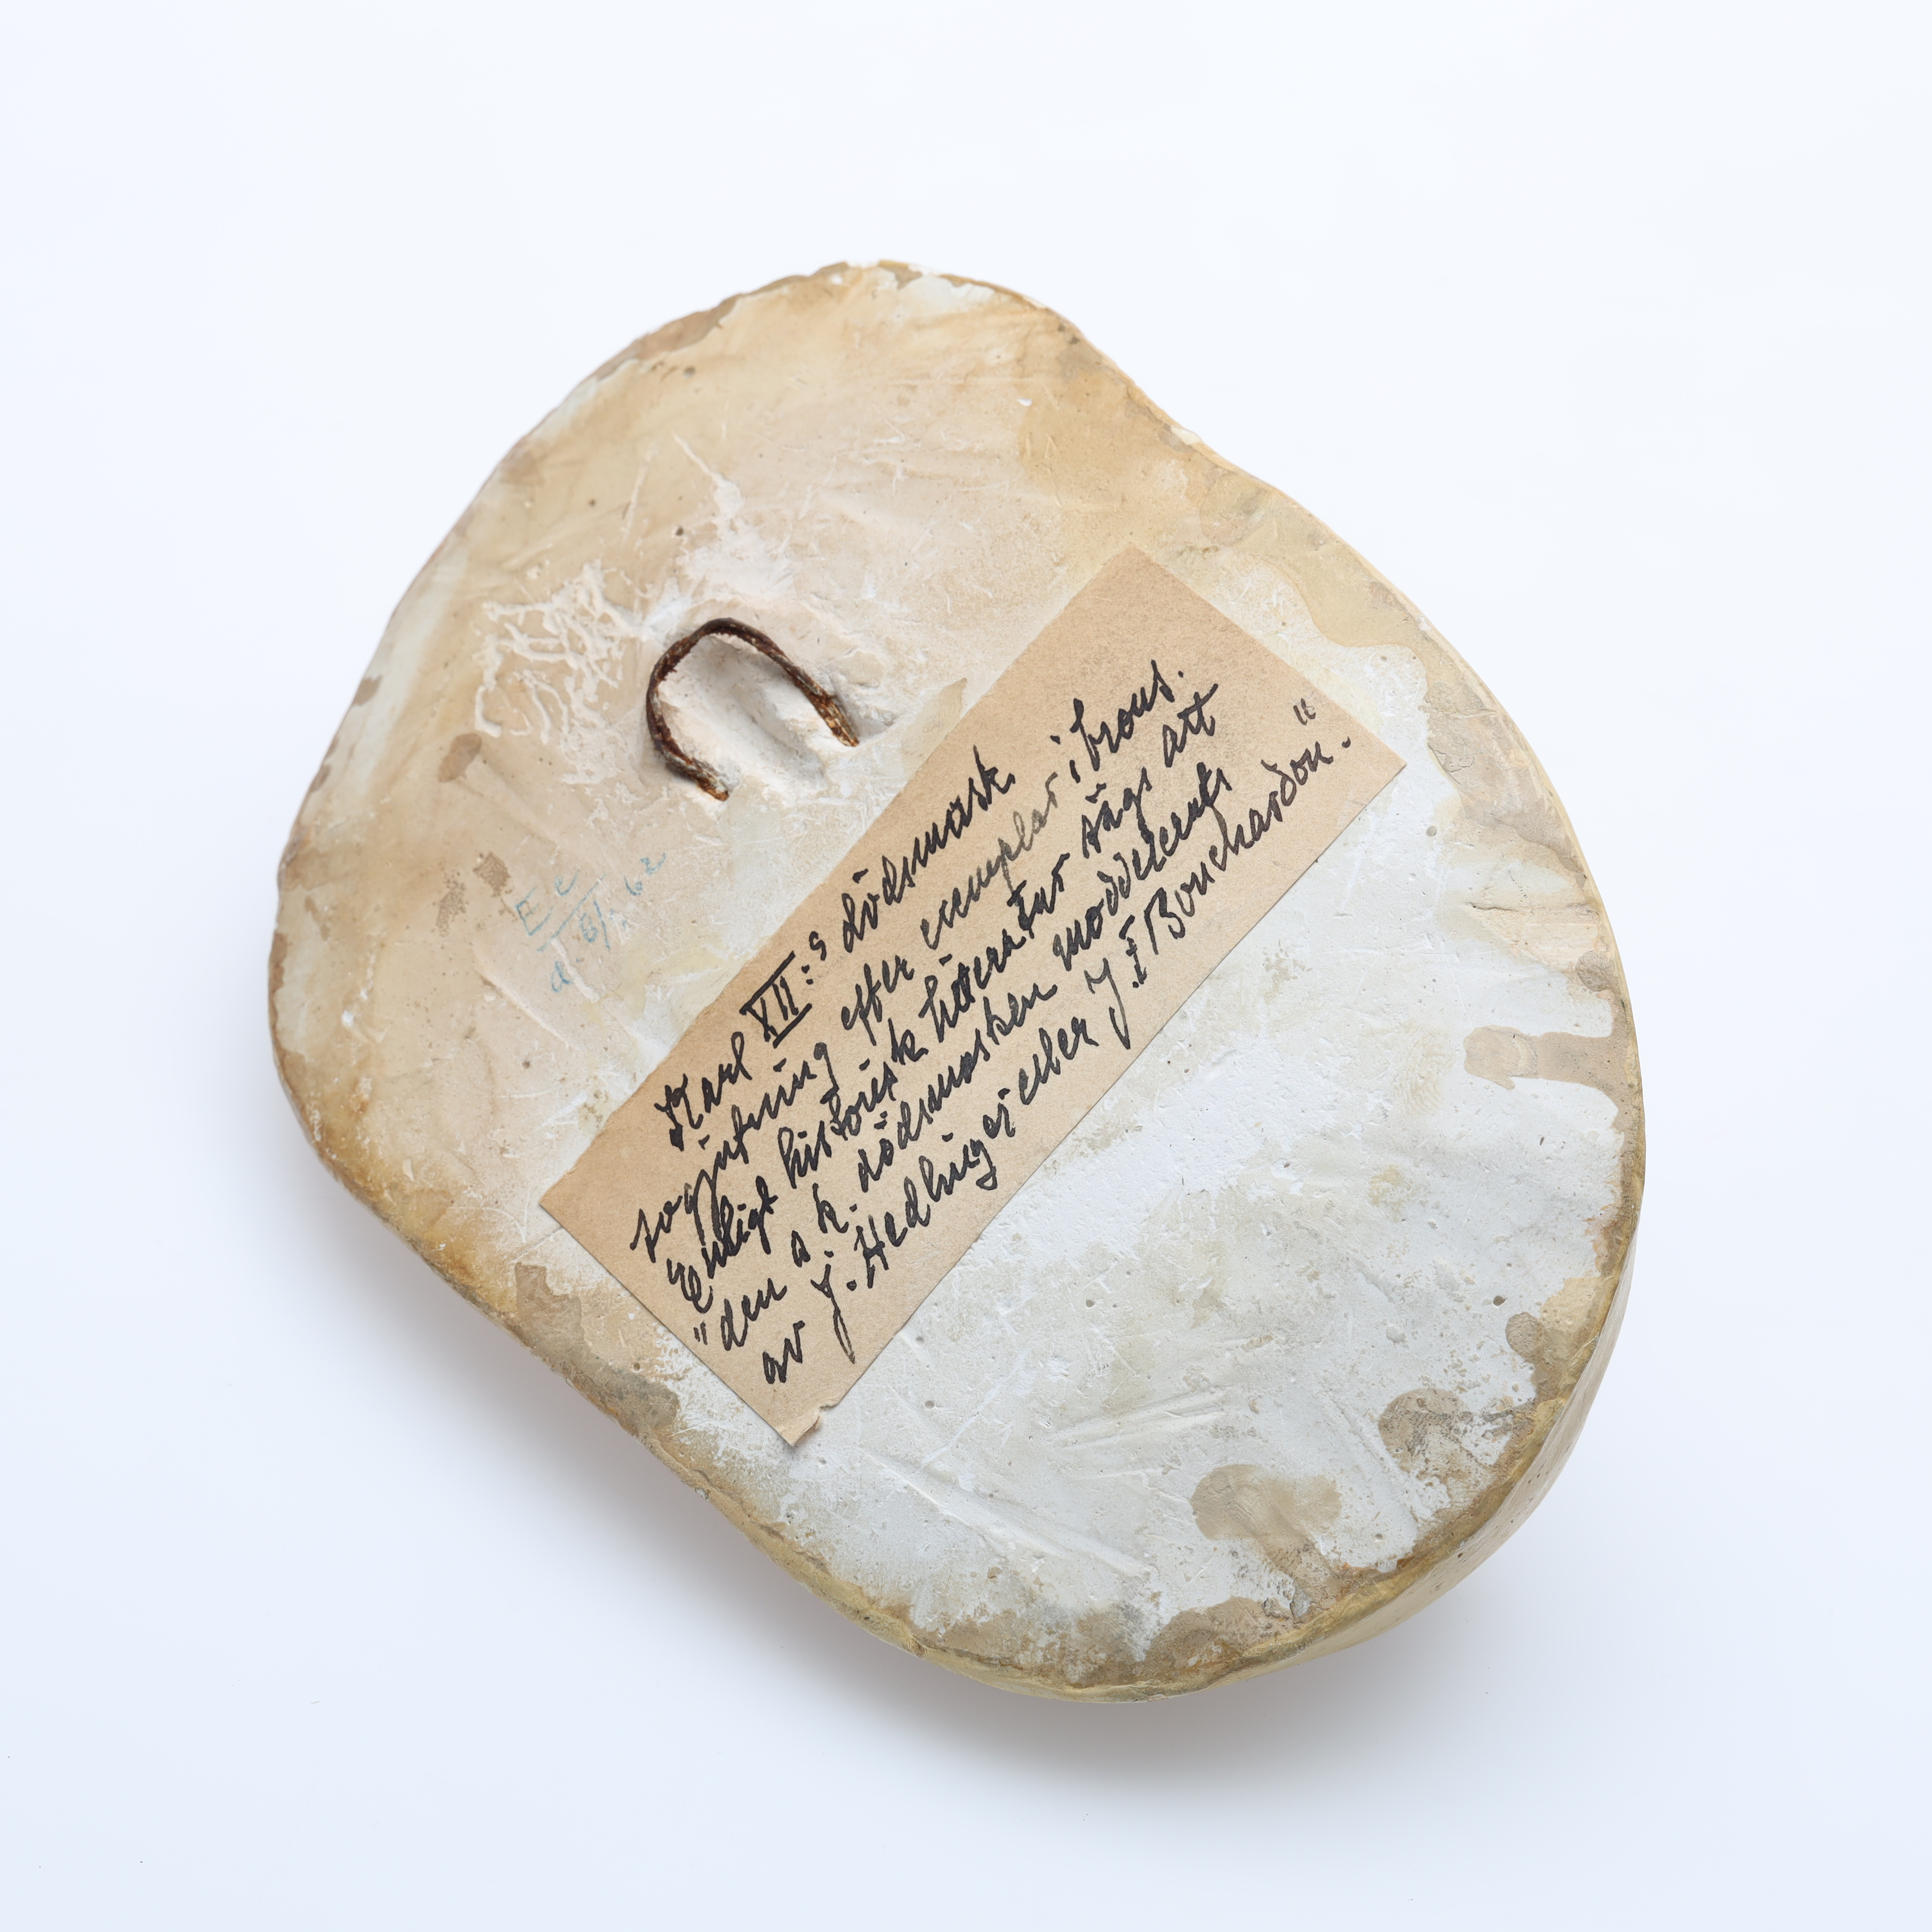 Karl XII:s dödsmask
avgjutning efter exemplar i brons.
Enligt historisk litteratur sägs att
"den s k. dödsmasken modellerats
av J. Hedlinger eller J. F Bouchardon."